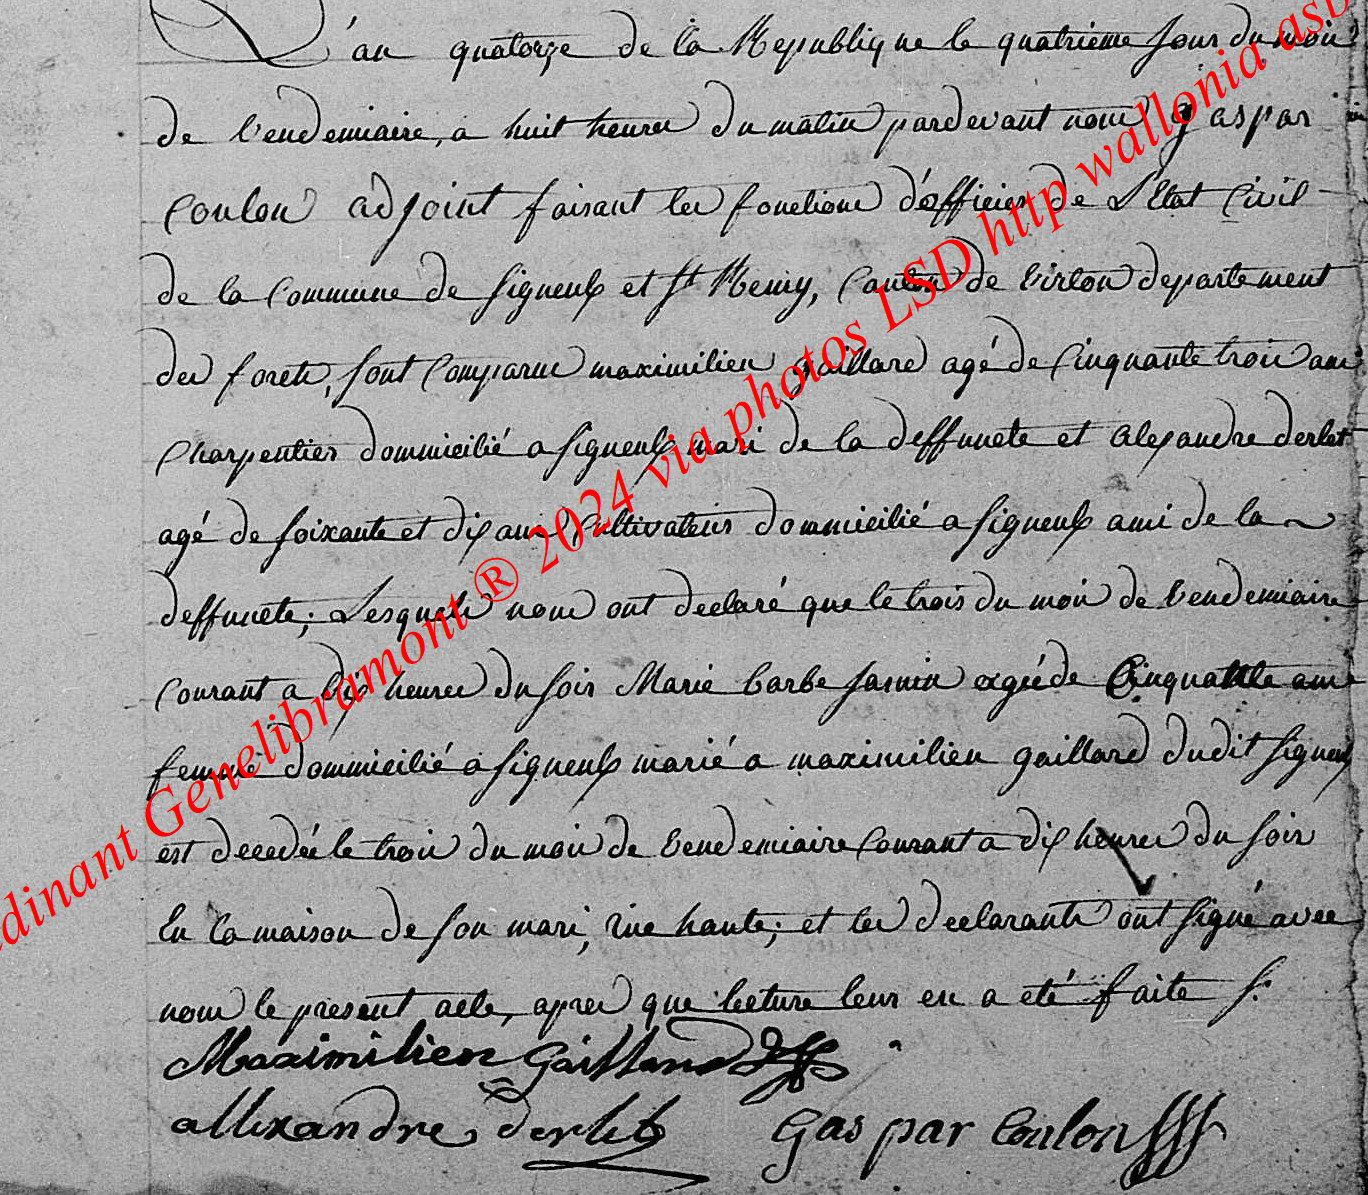 L'an quatorze de la Republique le quatrieme Jour du mois
de Vendemiaire, a huit heures du matin pardevant nous gaspar
Coulon adjoint faisant les fonctions d'officier de L'Etat Civil
de la Commune de Signeulx et St Remy, Canton de Virton departement
des forets, sont Comparus maximilien gaillard agé de Cinquante trois ans
Charpentier dommicilié a Signeulx mari de la deffuncte et alexandre derlet
agé de soixante et dix ans Cultivateur dommicilié a Signeulx ami de la
deffuncte; Lesquels nous ont declaré que le trois du mois de Vendemiaire
Courant a dix heures du soir Marie barbe Jasmin agée de Cinquante ans
femme dommicilié a Signeulx marié a maximilien gaillard dudit Signeulx
est decedée le trois du mois de Vendemiaire Courant a dix heures du soir
En La maison de son mari, rue haute; et les declarants ont signé avec
nous le present acte, apres que lecture leur en a eté faite
Maximilien Gaillard
allexandre derleb Gaspar Coulon
dinant Genelibramont ® 2024 via photos LSD http wallonia asb